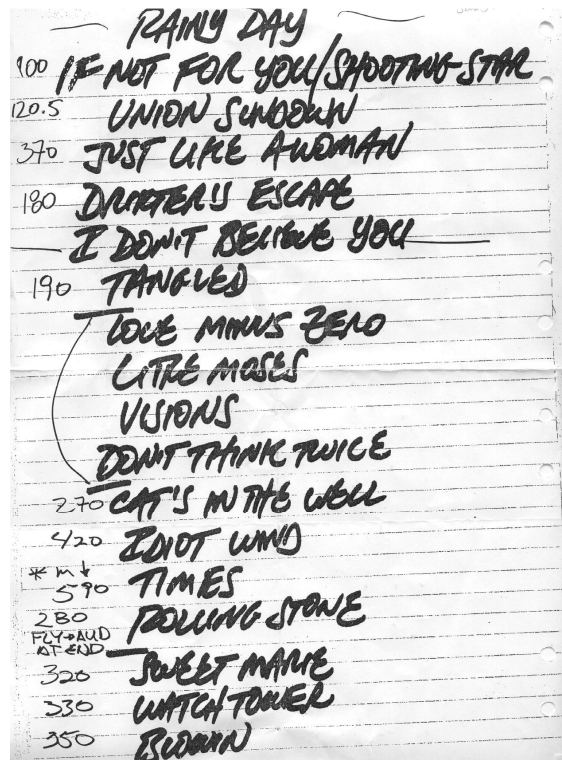 RAINY DAY
100 IF NOT FOR YOU/SHOOTING STAR
120.5 UNION SUNDOWN
370 JUST LIKE A WOMAN
180 DRIFTER'S ESCAPE
I DON'T BELIEVE YOU
190 TANGLED
LOVE MINUS ZERO
LITTLE MOSES
VISIONS
DON'T THINK TWICE
270 CAT'S IN THE WELL
420 IDIOT WIND
* m ↓
590 TIMES
280 ROLLING STONE
FLY→AUD
AT END
320 SWEET MARIE
330 WATCHTOWER
350 BLOWIN